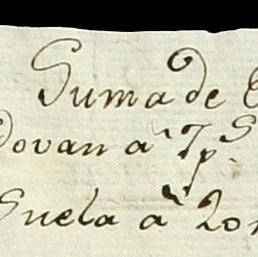 Suma de
Dovan a 7 p.s
Suela a 20